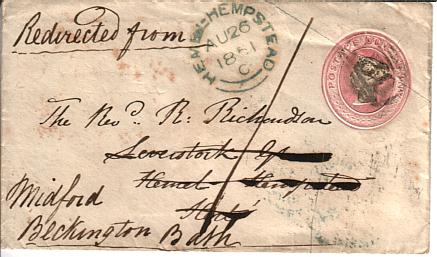 Redirected from
HEMEL-HEMPSTEAD
AU 26
1861
C
POSTAGE
The Revd. R: Richardson
Leverstock
Hemel Hempstead
Herts
Midford
Beckington Bath